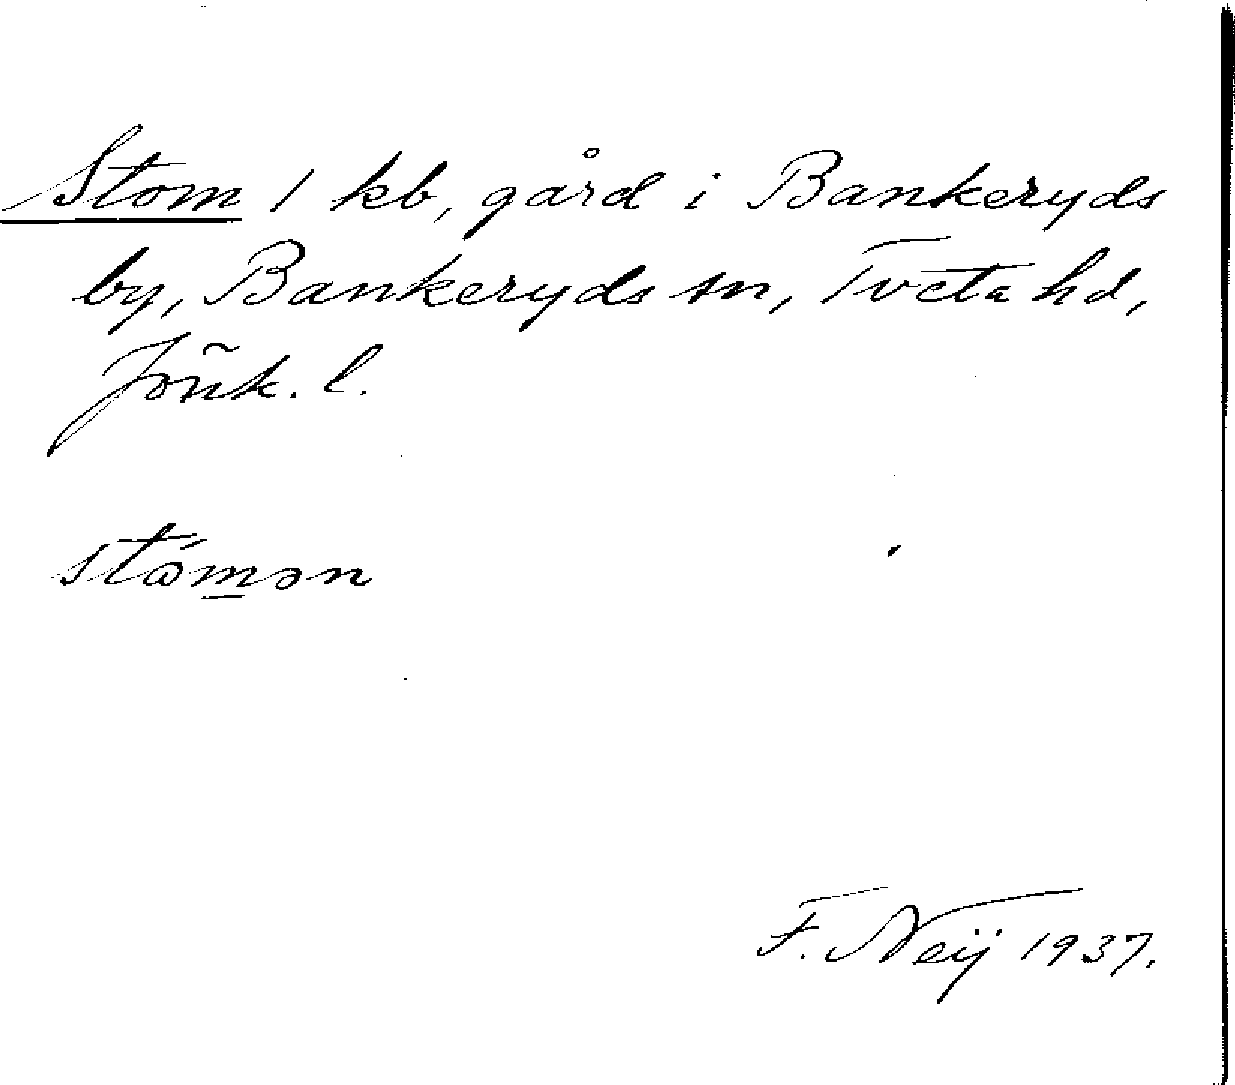 Stom 1 kb, gård i Bankeryds
by, Bankeryds sn, Tveta hd,
Jönk. l.
stómən
F. Neij 1937.